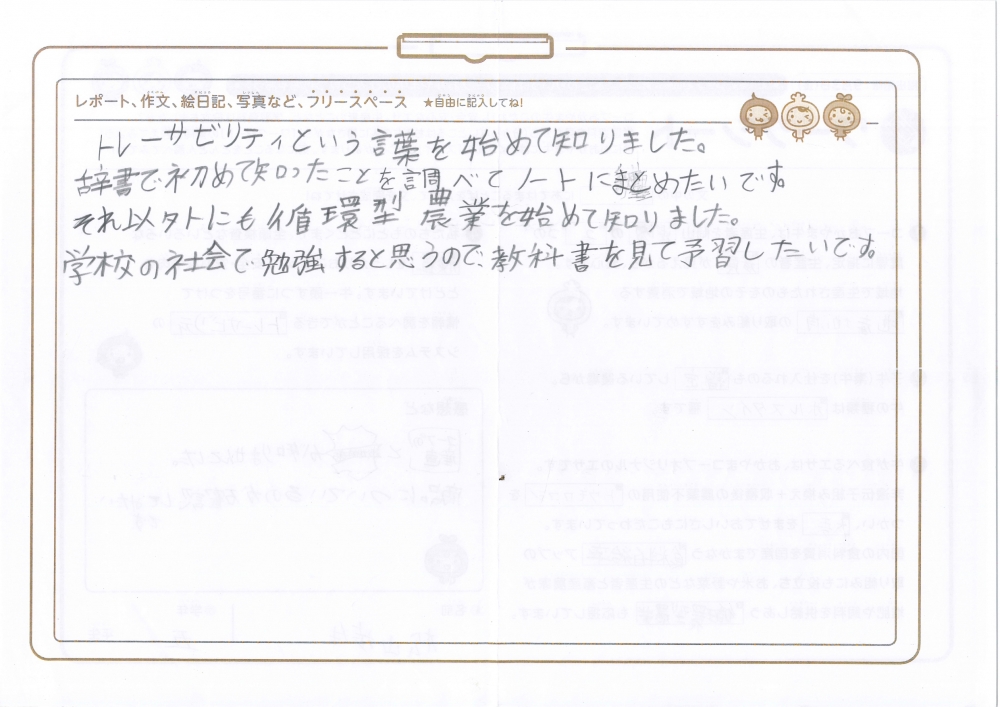 レポート、作文、絵日記、写真など、フリースペース ★自由に記入してね!
トレーサビリティという言葉を始めて知りました。
辞書で初めて知ったことを調べてノートに纏めたいです
それ以外にも循環型農業を始めて知りました。
学校の社会で勉強すると思うので教科書を見て予習したいです。